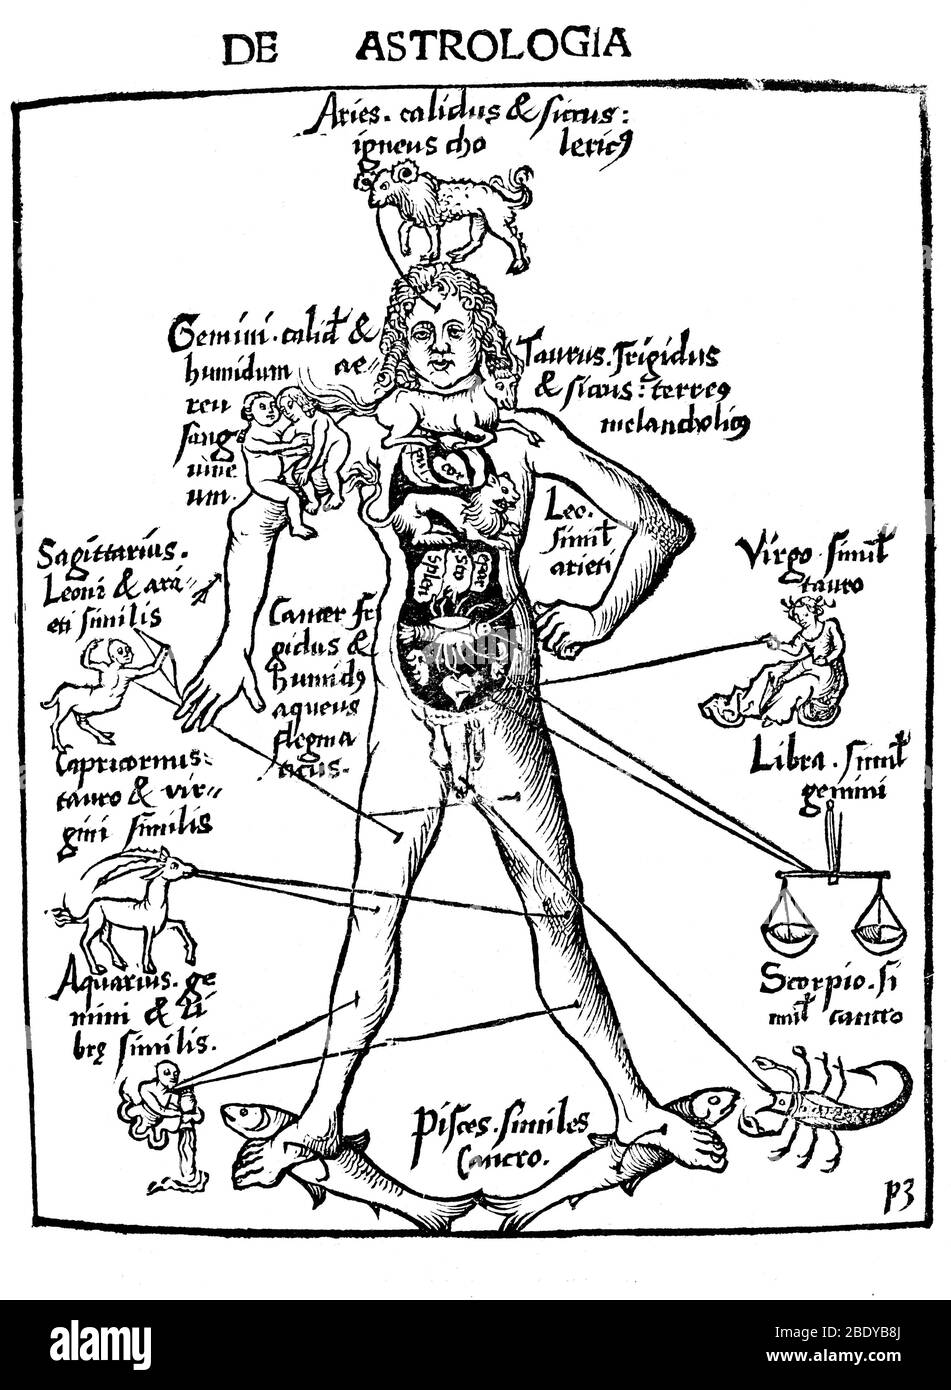 DE ASTROLOGIA
Aries. calidus & siccus:
igneus cho lericꝰ
Gemini. calid & humidum ae-
reu
sang
uine
um.
Taurus. frigidus
& siccus: terreꝰ
melancholicꝰ
cor
Leo.
simil
arieti
Sagittarius.
Leoni & ari
eti similis
Virgo. simil
tauro
splen
sto
epar
Cancer fri
gidus &
humidꝰ
aqueus
flegma
ticus.
Capricornus:
tauro & vir-
gini similis
Libra. simil
gemini
Aquarius. ge
mini & li
brę similis.
Scorpio. si
mil cancro
Pisces. similes
Cancro.
p3
alamy
Image ID: 2BDYB8J
www.alamy.com